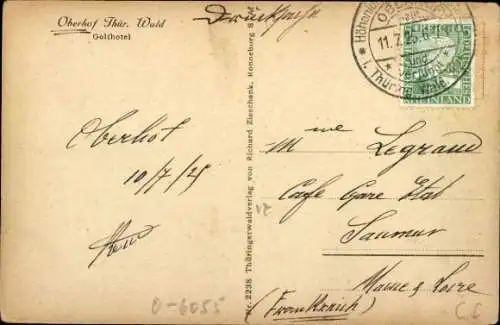 Oberhof Thür. Wald
Golfhotel
Drucksache
Höhenl
OBE
11.7.25.6
und
i. Thüringer Wald
RHEINLAND
Oberhof
10/7/25
Mme Legrand
Café Gare Etat
Saumur
Maine & Loire
(Frankreich)
Nr. 2238 Thüringerwaldverlag von Richard Zieschank, Ronneburg S.-Altb.
O-6055